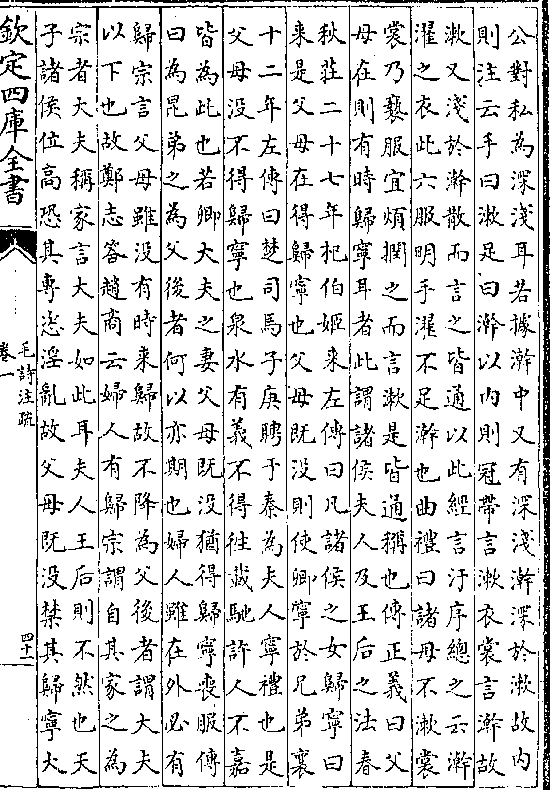 公對私為深淺耳若據澣中又有深淺澣深於漱故内
則注云手曰漱足曰澣以内則冠帶言漱衣裳言澣故
漱又淺於澣散而言之皆通以此經言汙序總之云澣
濯之衣此六服明手濯不足澣也曲禮曰諸母不漱裳
裳乃褻服宜煩撋之而言漱是皆通稱也傳正義曰父
母在則有時歸寧耳者此謂諸侯夫人及王后之法春
秋莊二十七年杞伯姬来左傳曰凡諸侯之女歸寧曰
来是父母在得歸寧也父母既没則使卿寧於兄弟襄
十二年左傳曰楚司馬子庚聘于秦為夫人寧禮也是
父母没不得歸寧也泉水有義不得往載馳許人不嘉
皆為此也若卿大夫之妻父母既没猶得歸寧喪服傳
曰為昆弟之為父後者何以亦期也婦人雖在外必有
歸宗言父母雖没有時来歸故不降為父後者謂大夫
以下也故鄭志答趙商云婦人有歸宗謂自其家之為
宗者大夫稱家言大夫如此耳夫人王后則不然也天
子諸侯位高恐其專恣淫亂故父母既没禁其歸寧大
欽定四庫全書
毛詩注疏
卷一
四十一